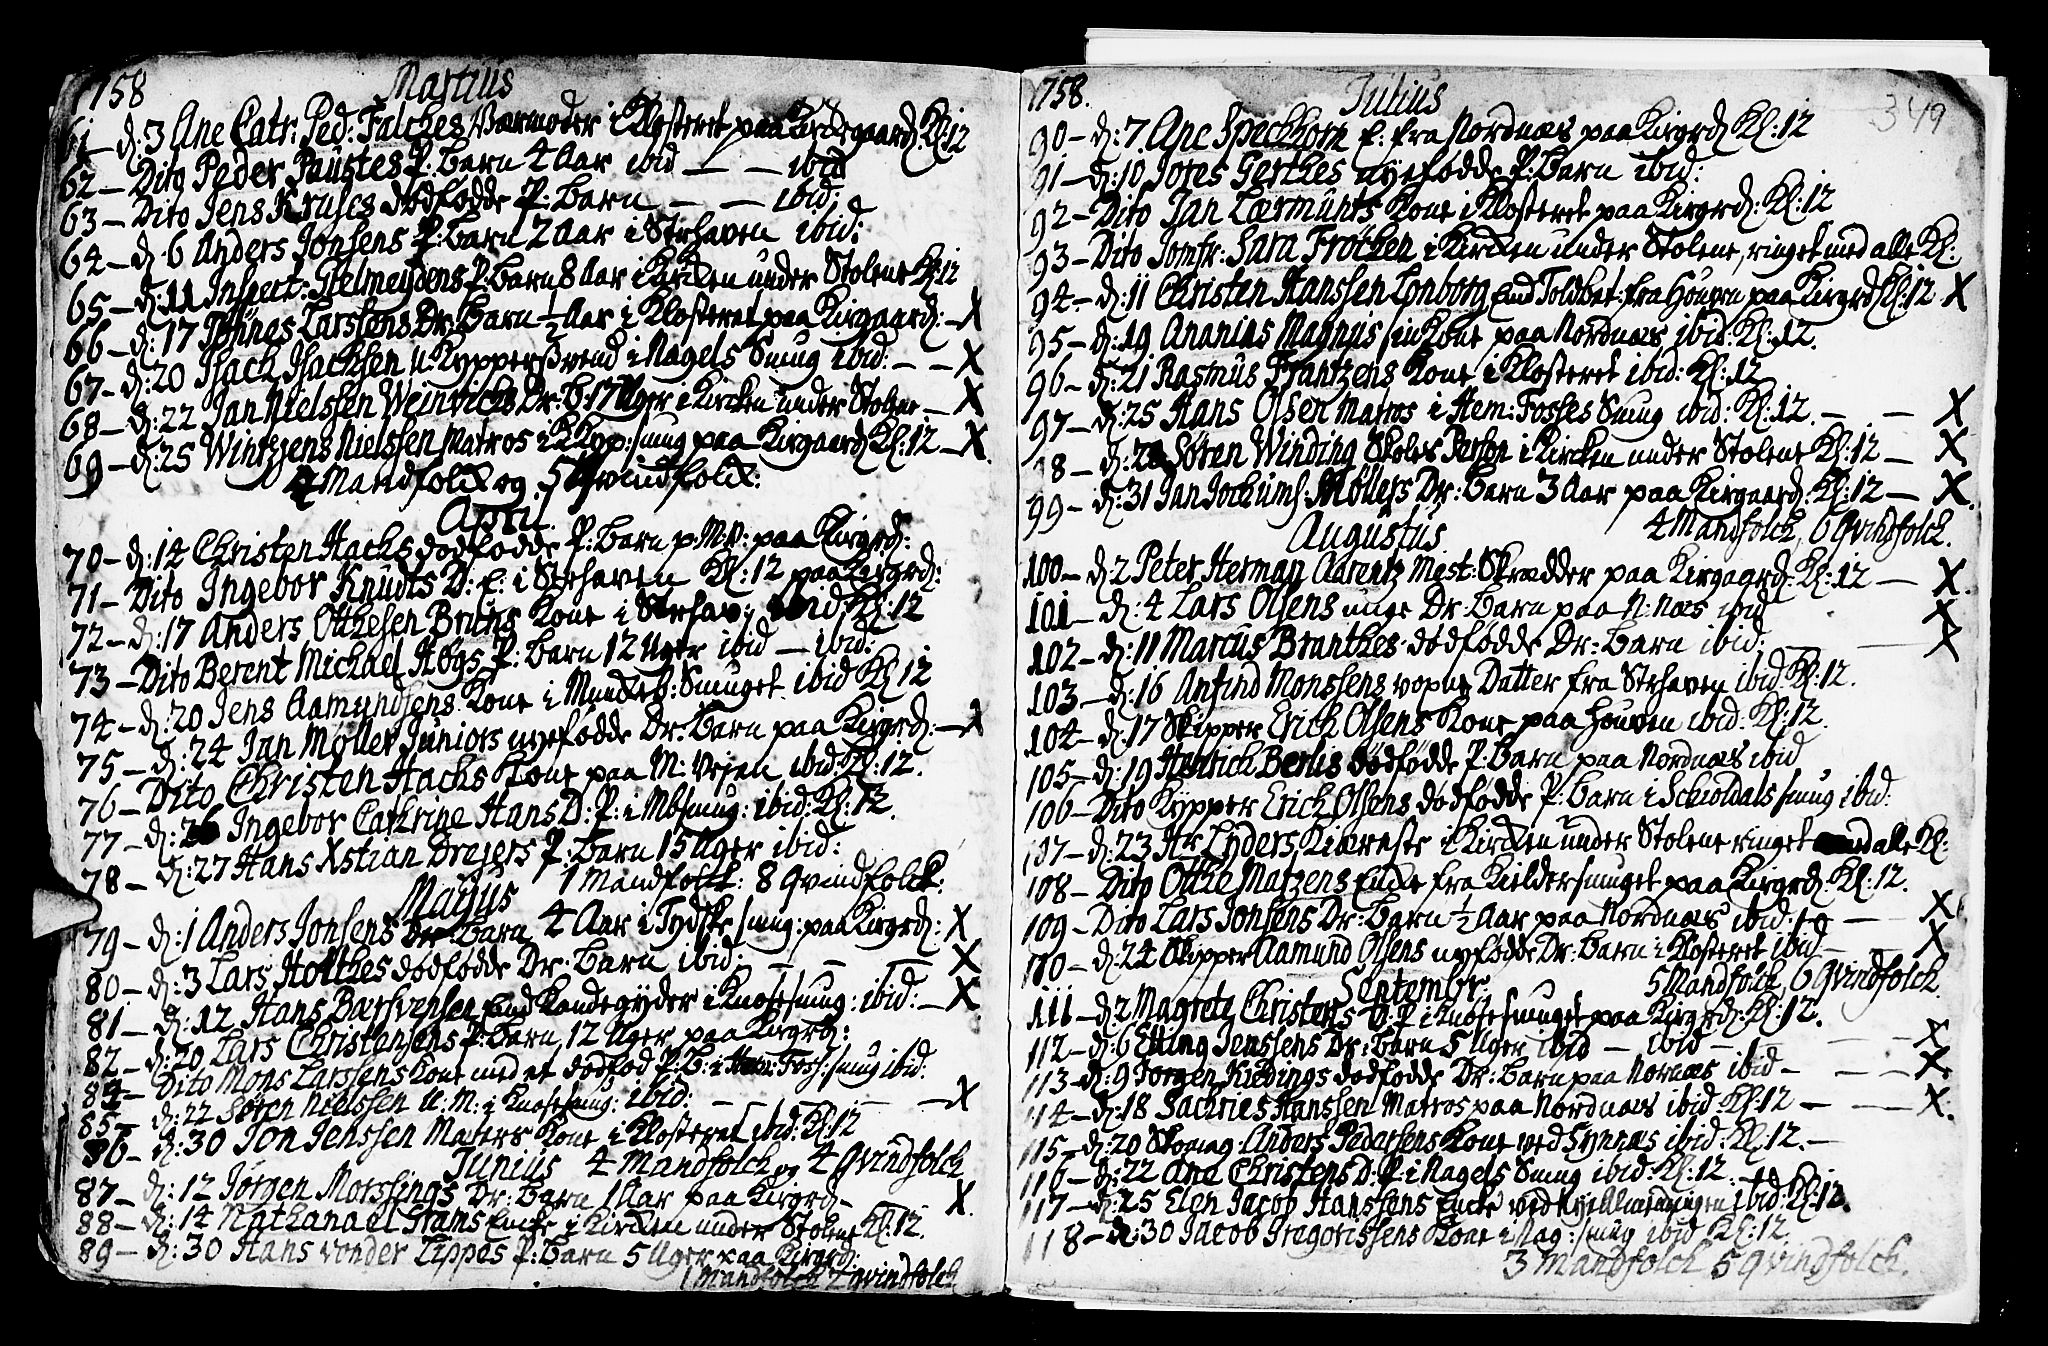 1758 Martius
61 – d: 3 Ane Catr: Ped: Falches Varmoder i Klosteret paa Kirgaard: Kl: 12
62 – Dito Peder Paustes P: Barn 4 Aar ibid – – ibid
63 – Dito Jens Kruses dødfødde P: Barn – – ibid:
64 – d: 6 Anders Jonsens P: Barn 2 Aar i Strhaven ibid:
65 – d: 11 Inspect: Stelmeydens P: Barn 8 Aar i Kirken under Stolene Kl: 12
66 – d: 17 Larssens Dr: Barn ½ Aar i Klosteret paa Kirgaard: – X
67 – d: 20 Isach Isachsen u: Kyppersvend i Nagels Smug ibid: – – X
68 – d: 22 Jan Nielssen Weinvichs Dr: B: 17 Uger i Kircken under Stolene – X
69 – d: 25 Nielssen Matros i Kyp: smug paa Kirgaard: Kl: 12 – X
4 Mandfolck og 5 Qvindfolck:
April
70 – d: 14 Christen Hachs dødfødde P: Barn p: M: V: paa Kirgrd:
71 – Dito Ingebor Knudts D: E: i Strhaven Kl: 12 paa Kirgrd:
72 – d: 17 Anders Ottesen Bruhs Kone i Strhav: ibid: Kl: 12
73 – Dito Berent Michael Høgs P: Barn 12 Uger ibid – ibid:
74 – d: 20 Jens Aamundsens Kone i Smuget ibid Kl 12
75 – d: 24 Jan Møller Juniors nyefødde Dr: Barn paa Kirgrd: – X
76 – Dito Christen Hachs Kone paa M: Vejen ibid: Kl: 12.
77 – d: 26 Ingebor Cathrine Hans D: P: i smug: ibid: Kl: 12.
78 – d: 27 Hans Xstian Drejers P: Barn 15 Uger ibid:
Majus 1 Mandfolck: 8 Qvindfolck.
79 – d: 1 Anders Jonsens Dr: Barn 4 Aar i Tydske smug: paa Kirgrd: X
80 – d: 3 Lars Holthes dødfødde Dr: Barn ibid: – – – X
81 – d: 12 Hans Kandegyder i Knøsesmug: ibid: – X
82 – d: 20 Lars Christensens P: Barn 12 Uger paa Kirgrd:
84 – Dito Mons Larssens Kone med et dødfød P: B: i Hem: Foss: smug ibid:
85 – d: 22 Søren Nielssen U: M: i Knøsesmug: ibid: – – – X
86 – d: 30 Jon Jenssen Maters Kone i Klosteret ibid: Kl: 12
Junius 4 Mandfolck og 4 Qvindfolck
87 – d: 12 Jørgen Morssings Dr: Barn 1 Aar paa Kirgrd – X
88 – d: 14 Nathanael Enke i Kirken under Stolene Kl: 12.
89 – d: 30 Hans vonder Lippes P: Barn 5 Uger paa Kirgrd:
1 Mandfolck 2 Qvindfolck
1758. Julius 349
90 – d: 7. Ane Speckhorn E: fra Nordnæs paa Kirgrd: Kl: 12
91 – d: 10 Gerthes nyefødde P: Barn ibid:
92 – Dito Jan Lærmunts Kone i Klosteret paa Kirgrd: Kl: 12
93 – Dito Jomfr: Sara Frøchen i Kircken under Stolene, ringet med alle Kl:
94 – d: 11 Christen Hanssen Lønborg Toldbet: fra Houven paa Kirgrd: Kl: 12 X
95 – d: 19 Ananias Magnus sin Kone paa Nordnæs ibid: Kl: 12.
96 – d: 21 Rasmus Frantzens Kone i Klosteret ibid: Kl: 12
97 – d: 25 Hans Olsen Matros i Hem: Fosses Smug ibid: Kl: 12. – – X
98 – d: Søren Winding Skoles Person i Kircken under Stolene Kl: 12 – X
99 – d: 31 Jan Jochums: Møllers Dr: Barn 3 Aar paa Kirgaard: Kl: 12 – X
Augustus 4 Mandfolck, 6 Qvindfolck.
100 – d: 2 Peter Herman Aarentz Mest: Skrædder paa Kirgaard: Kl: 12 – X
101 – d: 4 Lars Olsens unge Dr: Barn paa N: næs ibid X
102 – d: 11 Marcus Branthes dødfødde Dr: Barn ibid: – X
103 – d: 16 Anfind Monssens voxne Datter fra Strhaven ibid: Kl: 12.
104 – d: 17 Skipper Erich Olsens Kone paa Houven ibid: Kl: 12.
105 – d: 19 Henrich Berlis dødfødde P: Barn paa Nordnæs ibid
106 – Dito Kypper Erich Olsens dødfødde P: Barn i Schioldals smug ibid:
107 – d: 23 Hr Lyders Kiæreste i Kircken under Stolene ringet med alle Kl:
108 – Dito Otthe Matzens Enke fra Kieldersmuget paa Kirgrd: Kl: 12.
109 – Dito Lars Jonsens Dr: Barn ½ Aar paa Nordnæs ibid: – X
110 – d: 24 Skipper Aamund Olsens nyfødde Dr: Barn i Klosteret ibid – X
Septembr. 5 Mandfolck, 6 Qvindfolck.
111 – d: 2 Magrete Christens D: P: i Knøsesmuget paa Kirgrd: Kl: 12.
112 – d: 6 Elling Jenssens Dr: Barn 5 Uger ibid – ibid – – X
113 – d: 9 Jørgen Kiedings dødfødde Dr: Barn paa Nornæs ibid – – X
114 – d: 18 Sachries Hanssen Matros paa Nordnæs ibid: Kl: 12 – – X
115 – d: 20 Skomag: Anders Pedersens Kone ved Synnæs ibid: Kl: 12. –
116 – d: 22 Ane Christens D: P: i Nagels Smug ibid: Kl: 12. –
117 – d: 25 Elen Jacob Hanssens Encke ved Nye Almindingen ibid: Kl: 12.
118 – d: 30 Jacob Gregorissens Kone i Nag: smug ibid Kl: 12.
3 Mandfolck 5 Qvindfolck.